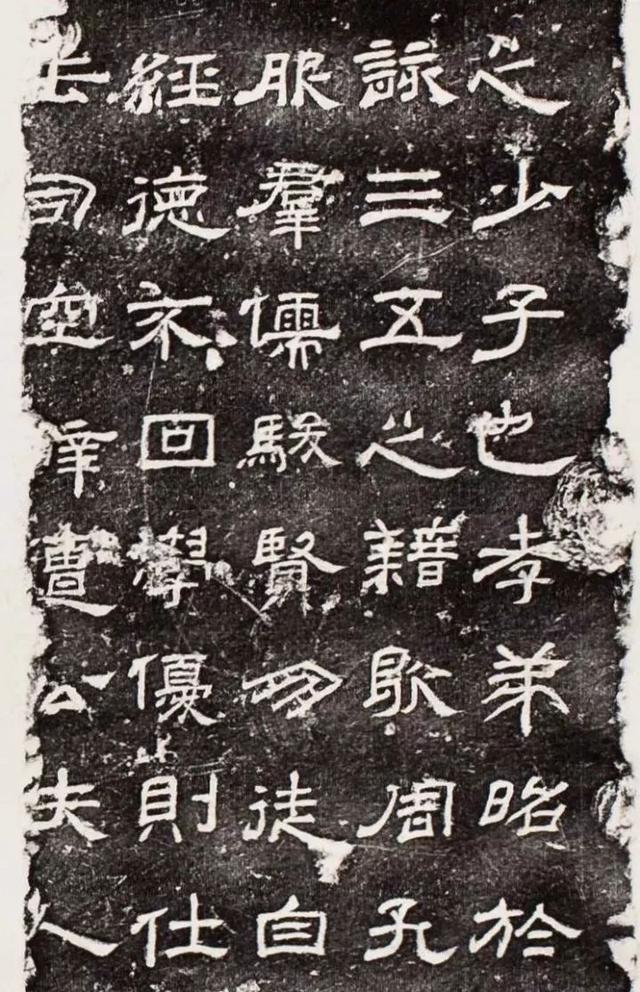 之少子也孝弟昭於
詠三五之籍耽周孔
服羣儒駿賢朋徒自
經德不回學優則仕
長司空幸遭公夫人